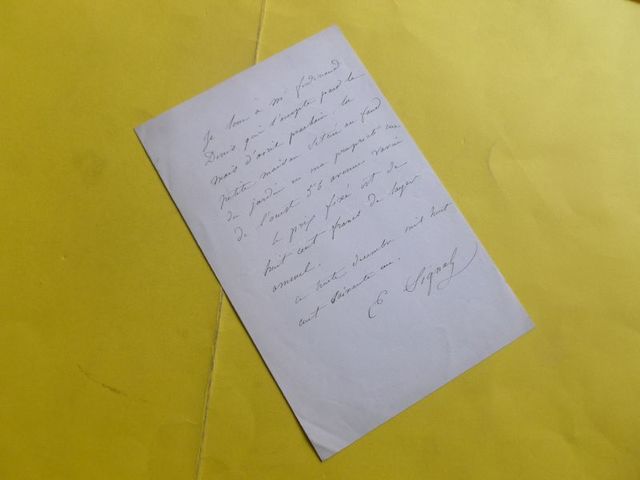 Je loue à Mr Ferdinand
Denis qui l'accepte pour le
mois d'avril prochain la
petite maison située au fond
du jardin en ma propriété rue
de l'ouest 56 avenue
le prix fixé est de
huit cent francs de loyer
annuel.
a trente decembre mil huit
cent soixante un.
E Signol